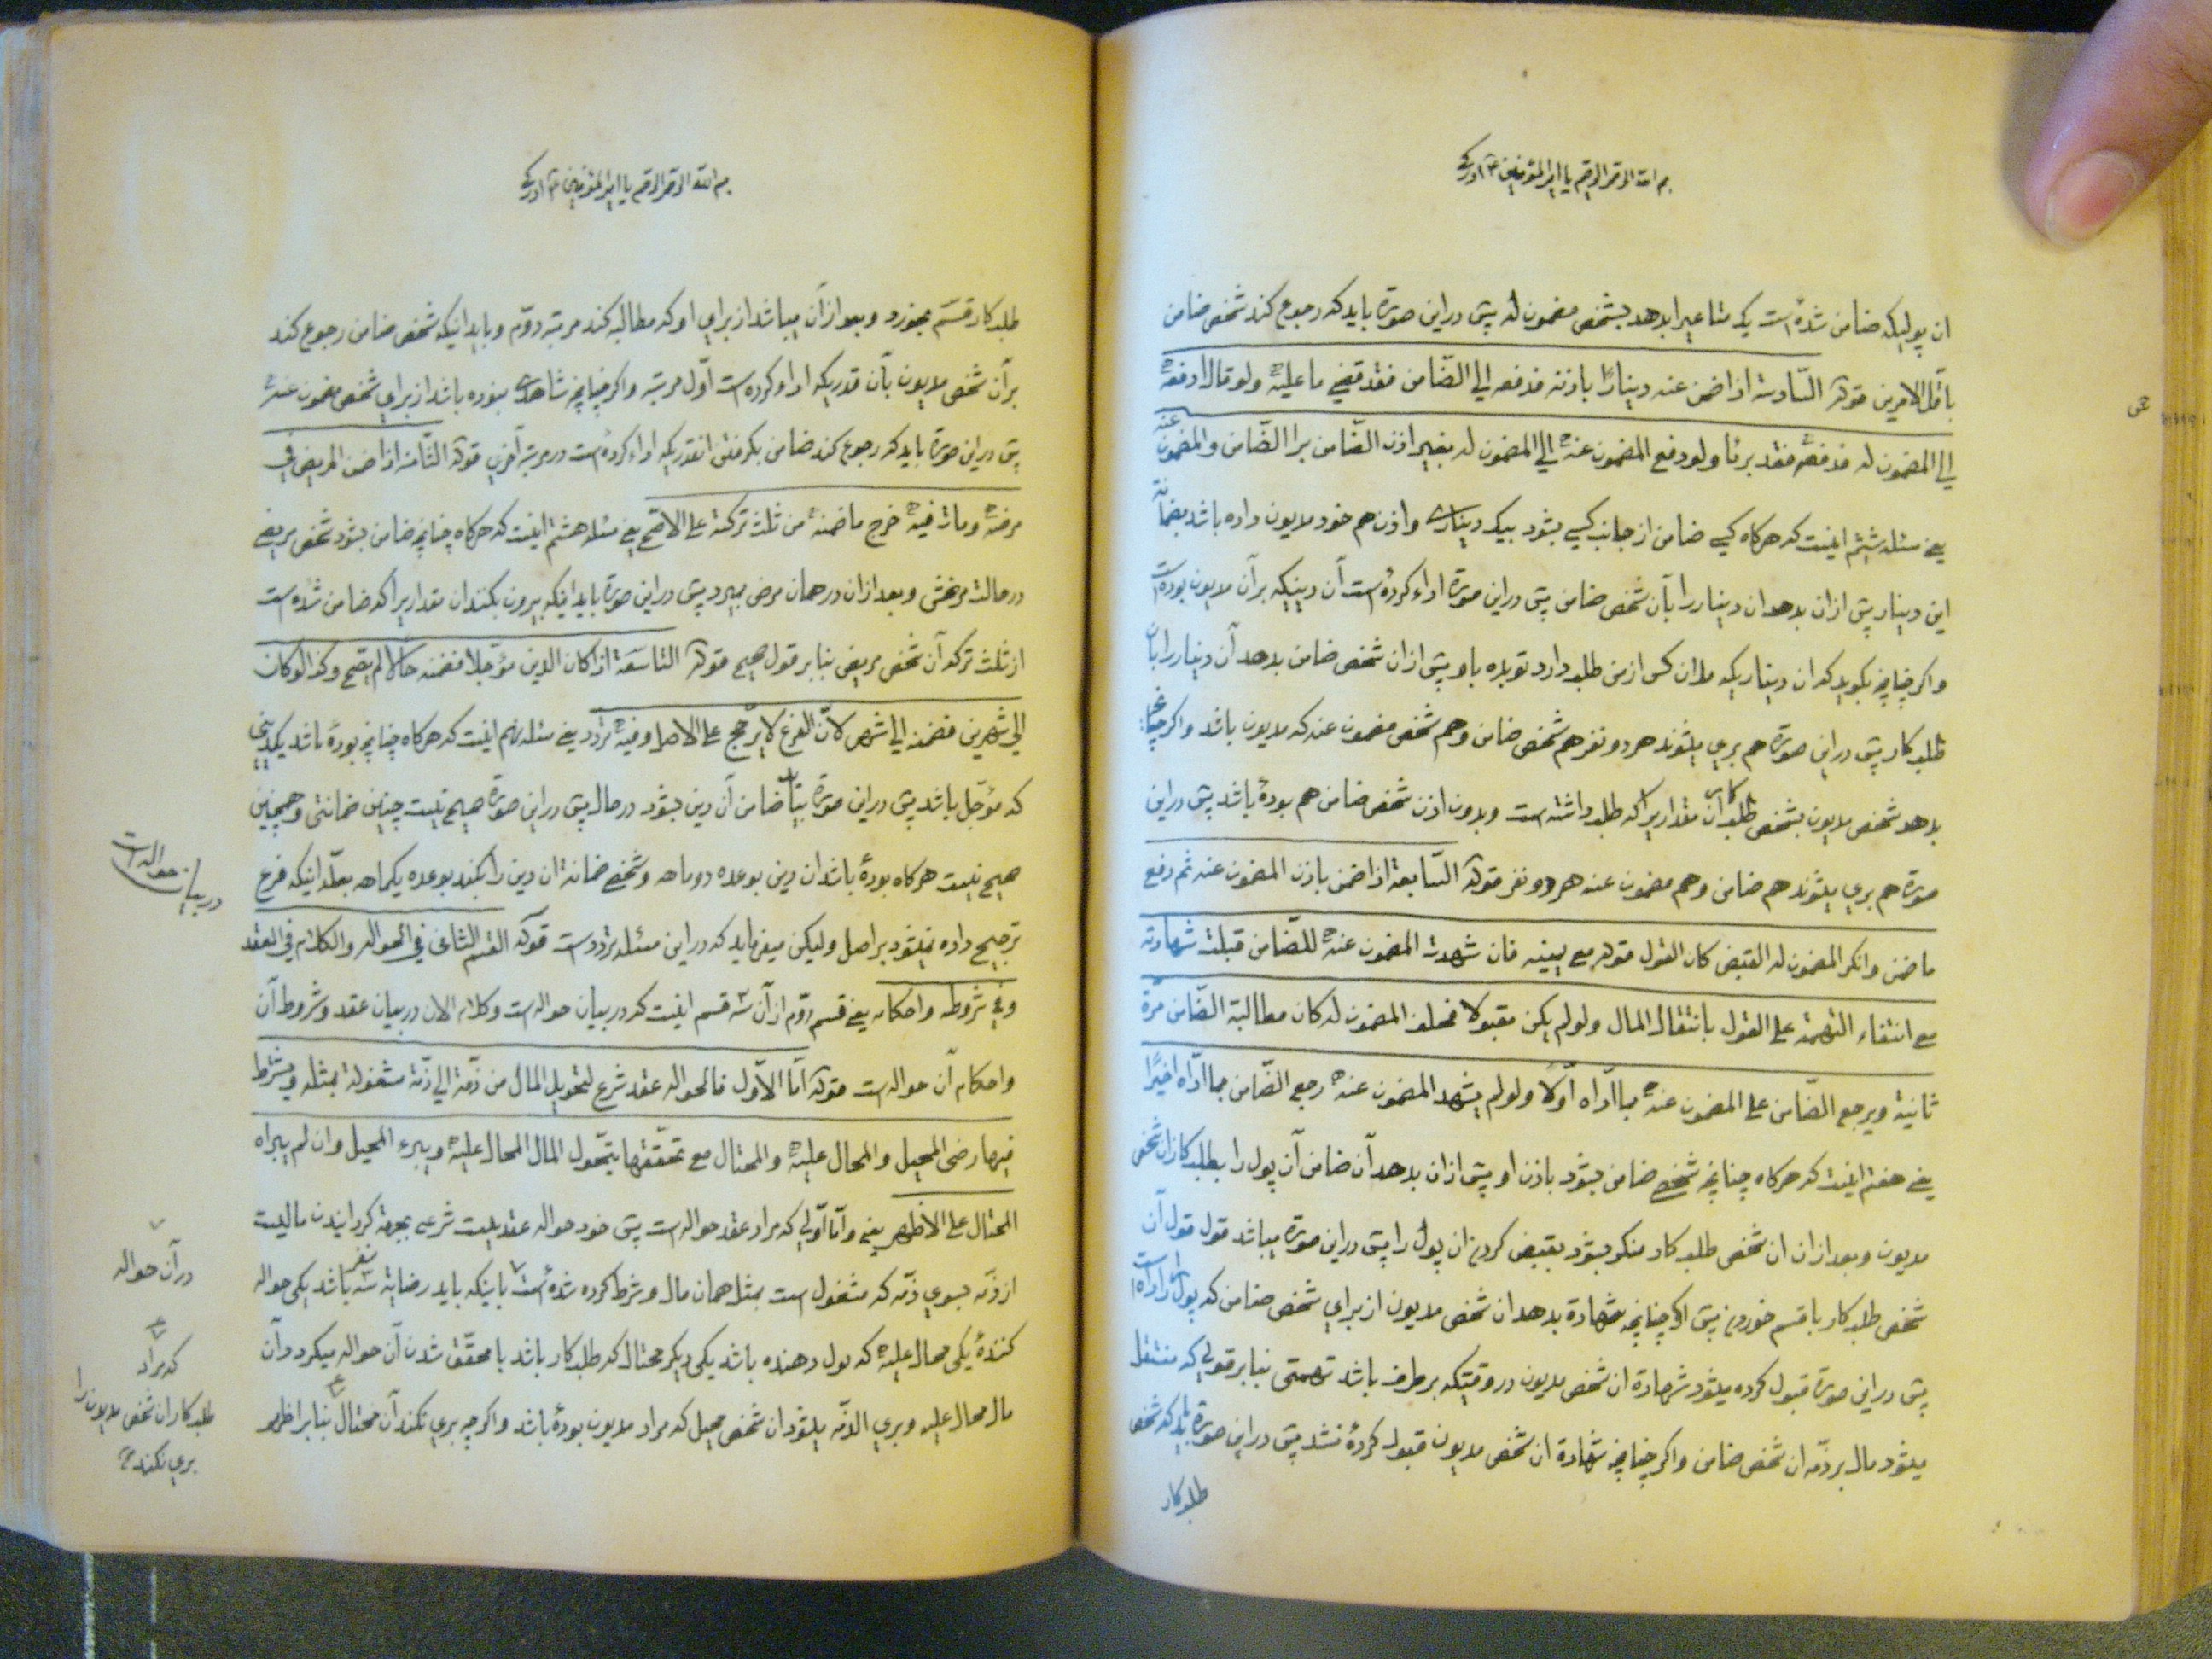 بسم الله الرحمن الرحیم یا امیر المؤمنین ع ادرکنی
ان پولیکه ضامن شده است یک متاعیرا بدهد بشخص مضمون له پس دراین صورة باید که رجوع کند شخص ضامن
باقل الامرین قوله السّادسة اذا ضمن عنه دینارًا باذنه فدفعه الی الضّامن فقد قضی ما علیه ولو قال ادفعه
الی المضمون له فدفعه فقد برئا ولو دفع المضمون عنه الی المضمون له بغیر اذن الضّامن برا الضّامن والمضمون عنه
یعنی مسئله ششم اینست که هرکاه کسی ضامن از جانب کسی بشود بیک دیناری واذن هم خود مدیون داده باشد بضمانة
این دینار پس ازان بدهد ان دینار را بآن شخص ضامن پس دراین صورة اداء کرده است آن دینیکه برآن مدیون بوده است
واکر چنانچه بکوید که ان دیناریکه ملان کس ازمن طلب دارد توبده باو پس ازان شخص ضامن بدهد آن دینار را بان
طلبکار پس دراین صورة هم بری میشوند هردو نفر هم شخص ضامن وهم شخص مضمون عنه که مدیون باشد واکر چنانچه
بدهد شخص مدیون بشخص طلبکار آن مقداریرا که طلب داشته است وبدون اذن شخص ضامن هم بودهٔ باشد پس دراین
صورة هم بری میشوند هم ضامن وهم مضمون عنه هردو نفر قوله السّابعة اذا ضمن باذن المضمون عنه ثم دفع
ما ضمن وانکر المضمون له القبض کان القول قوله مع یمینه فان شهدت المضمون عنه للضّامن قبلت شهادته
مع انتفاء التهمة علی القول بانتقال المال ولو لم یکن مقبولا فحلف المضمون له کان مطالبة الضّامن مرّة
ثانیة ویرجع الضّامن علی المضمون عنه بما ادّاه اوّلا ولو لم یشهد المضمون عنه رجع الضّامن بما ادّاه اخیرًا
یعنی هفتم اینست که هرکاه چنانچه شخصی ضامن بشود باذن او پس ازان بدهد آن ضامن آن پول را بطلبکار ان شخص
مدیون وبعد ازان ان شخص طلبکار منکر بشود بقبض کردن ان پول را پس دراین صورة میباشد قول قول آن
شخص طلبکار با قسم خوردن پس اکر چنانچه شهادة بدهد ان شخص مدیون از برای شخص ضامن که پول را داده است
پس دراین صورة قبول کرده میشود شهادة ان شخص مدیون در وقتیکه برطرف باشد تهمتی بنابر قولی که منتقل
میشود مال بر ذمّه ان شخص ضامن واکر چنانچه شهادة ان شخص مدیون قبول کردهٔ نشد پس دراین صورة باید که شخص
طلبکار
بسم الله الرحمن الرحیم یا امیر المؤمنین ع ادرکنی
طلبکار قسم بخورد وبعد ازآن میباشد از برای او که مطالبه کند مرتبه دوّم وباید اینکه شخص ضامن رجوع کند
برآن شخص مدیون بآن قدریکه اداء کرده است اوّل مرتبه واکر چنانچه شاهدی نبوده باشد از برای شخص مضمون عنه
پس دراین صورة باید که رجوع کند ضامن بکرفتن انقدریکه اداء کرده است در مرتبه آخرین قوله الثّامنة اذا ضمن المریض فی
مرضه ومات فیه خرج ما ضمنه من ثلث ترکته علی الاصح یعنی مسئله هشتم اینست که هرکاه چنانچه ضامن بشود شخص مریضی
در حالت مرضش وبعد ازان در همان مرض بمیرد پس دراین صورة باید اینکه بیرون بکنند ان مقداریرا که ضامن شده است
از ثلث ترکه آن شخص مریض بنابر قول صحیح قوله التاسعة اذا کان الدین مؤجلا فضمنه حالا لم یصح وکذا لو کان
الی شهرین فضمنه الی شهر لانّ الفرع لا یرجّح علی الاصل وفیه تردد یعنی مسئله نهم اینست که هرکاه چنانچه بودهٔ باشد یکدینی
که مؤجّل باشد پس دراین صورة بیاید ضامن آن دین بشود در حال پس دراین صورة صحیح نیست چنین ضمانتی وهمچنین
صحیح نیست هرکاه بودهٔ باشد ان دین بوعده دو ماهه وشخصی ضمانة ان دین را بکند بوعده یکماهه بعلّة اینکه فرع
ترجیح داده نمیشود بر اصل ولیکن میفرماید که دراین مسئله تردد است قوله القسم الثانی فی الحواله والکلام فی العقد
وفی شروطه واحکامه یعنی قسم دوّم ازآن سه قسم اینست که در بیان حواله است وکلام الان در بیان عقد وشروط آن
واحکام آن حواله است قوله امّا الاوّل فالحواله عقد شرع لتحویل المال من ذمّة الی ذمّة مشغولة بمثله ویشترط
فیها رضی المحیل والمحال علیه والمحتال مع تحقّقها یتحّول المال المحال علیه ویبرء المحیل وان لم یبراه
المحتال علی الاظهر یعنی وامّا اوّلی که مراد عقد حواله است پس خود حواله عقدیست شرعی بجهة کردانیدن مالیست
از ذمّه بسوی ذمّه که مشغول است بمثل همان مال وشرط کرده شدهٔ است باینکه باید رضایة سه نفر باشد یکی حواله
کنندهٔ یکی محال علیه که پول دهنده باشد یکی دیکر محتال که طلبکار باشد با محقّق شدن آن حواله میکردد آن
مال محال علیه وبری الذمّه میشود ان شخص محیل که مراد مدیون بودهٔ باشد واکرچه بری نکند آن محتال بنابر اظهر
در بیان حواله است
درآن حواله
که مراد
طلبکار ان شخص مدیون را
بری نکند